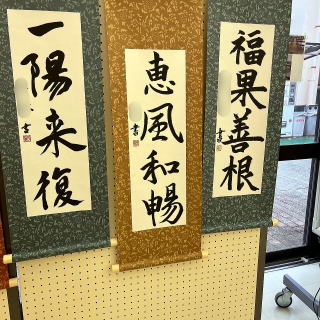 福果善根
恵風和暢
書
一陽来復
書